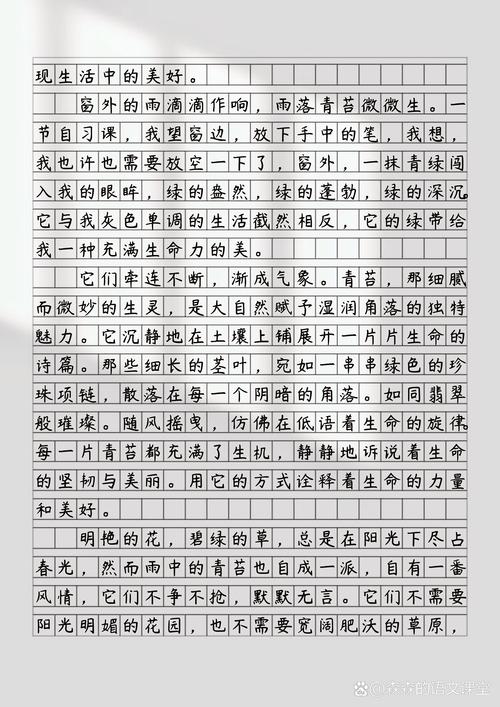 现生活中的美好。
窗外的雨滴滴作响，雨落青苔微微生。一
节自习课，我望窗边，放下手中的笔，我想，
我也许也需要放空一下了，窗外，一抹青绿闯
入我的眼眸，绿的盎然，绿的蓬勃，绿的深沉。
它与我灰色单调的生活截然相反，它的绿带给
我一种充满生命力的美。
它们牵连不断，渐成气象。青苔，那细腻
而微妙的生灵，是大自然赋予湿润角落的独特
魅力。它沉静地在土壤上铺展开一片片生命的
诗篇。那些细长的茎叶，宛如一串串绿色的珍
珠项链，散落在每一个阴暗的角落。如同翡翠
般璀璨。随风摇曳，仿佛在低语着生命的旋律。
每一片青苔都充满了生机，静静地诉说着生命
的坚韧与美丽。用它的方式诠释着生命的力量
和美好。
明艳的花，碧绿的草，总是在阳光下尽占
春光，然而雨中的青苔也自成一派，自有一番
风情，它们不争不抢，默默无言。它们不需要
阳光明媚的花园，也不需要宽阔肥沃的草原，
森森的语文课堂